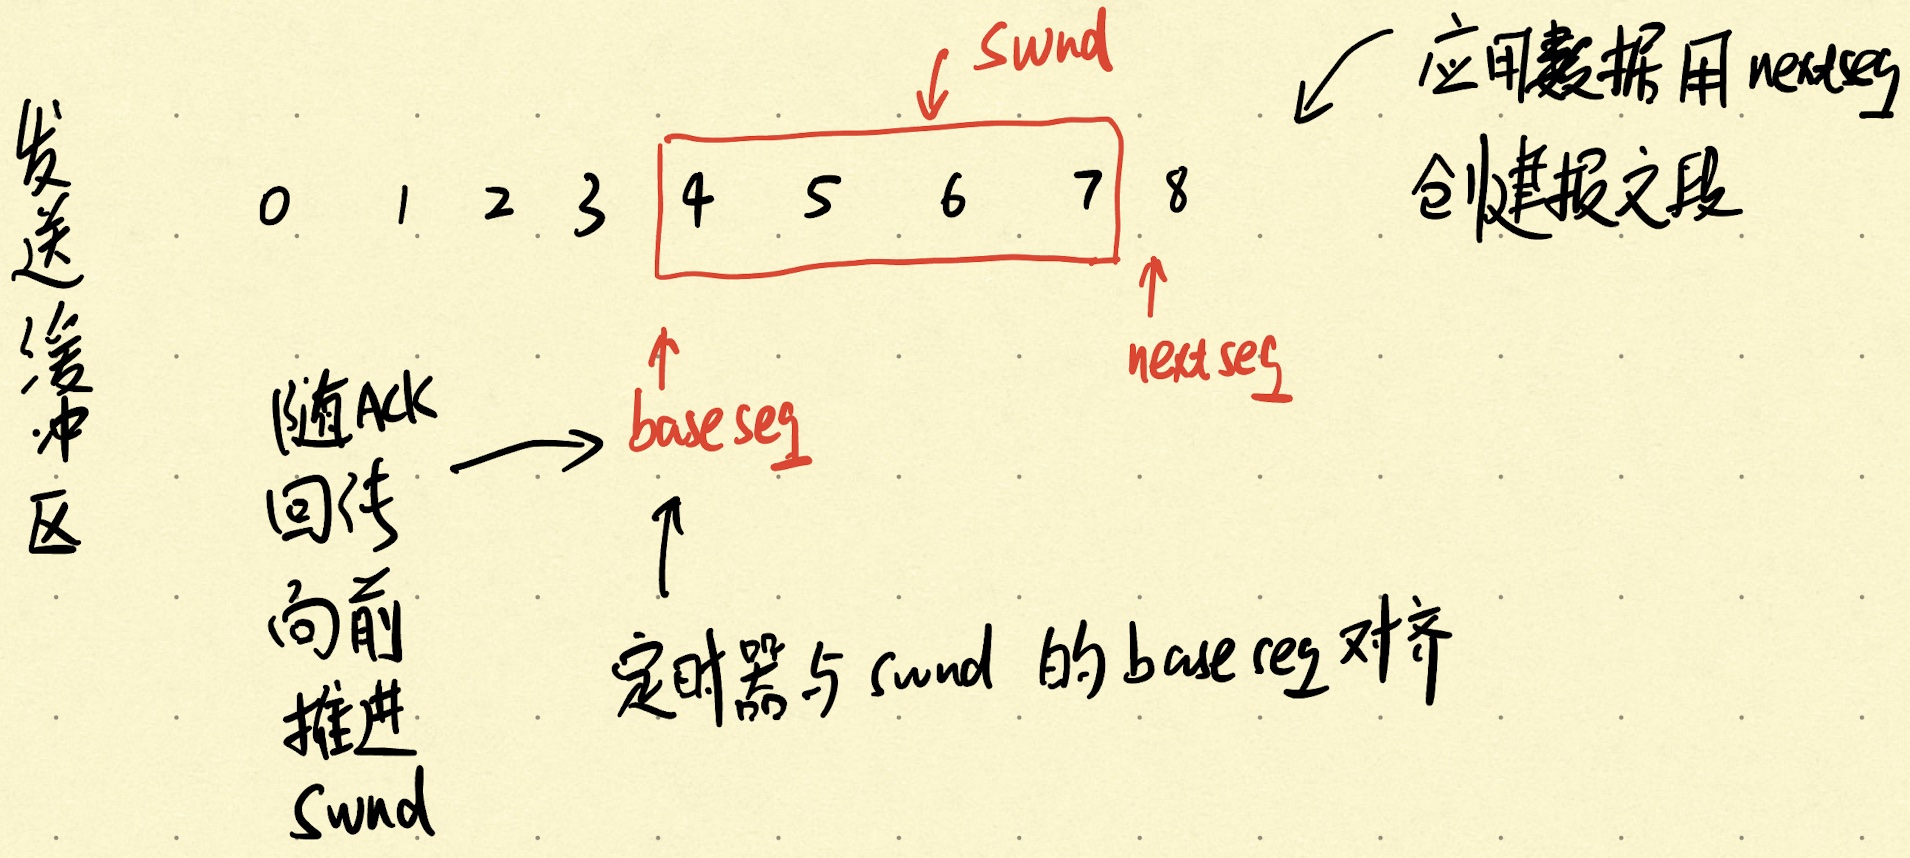 发送缓冲区
swnd
应用数据用nextseq
创建报文段
0 1 2 3 4 5 6 7 8
nextseq
baseseq
随ACK
回传
向前
推进
swnd
定时器与swnd的baseseq对齐